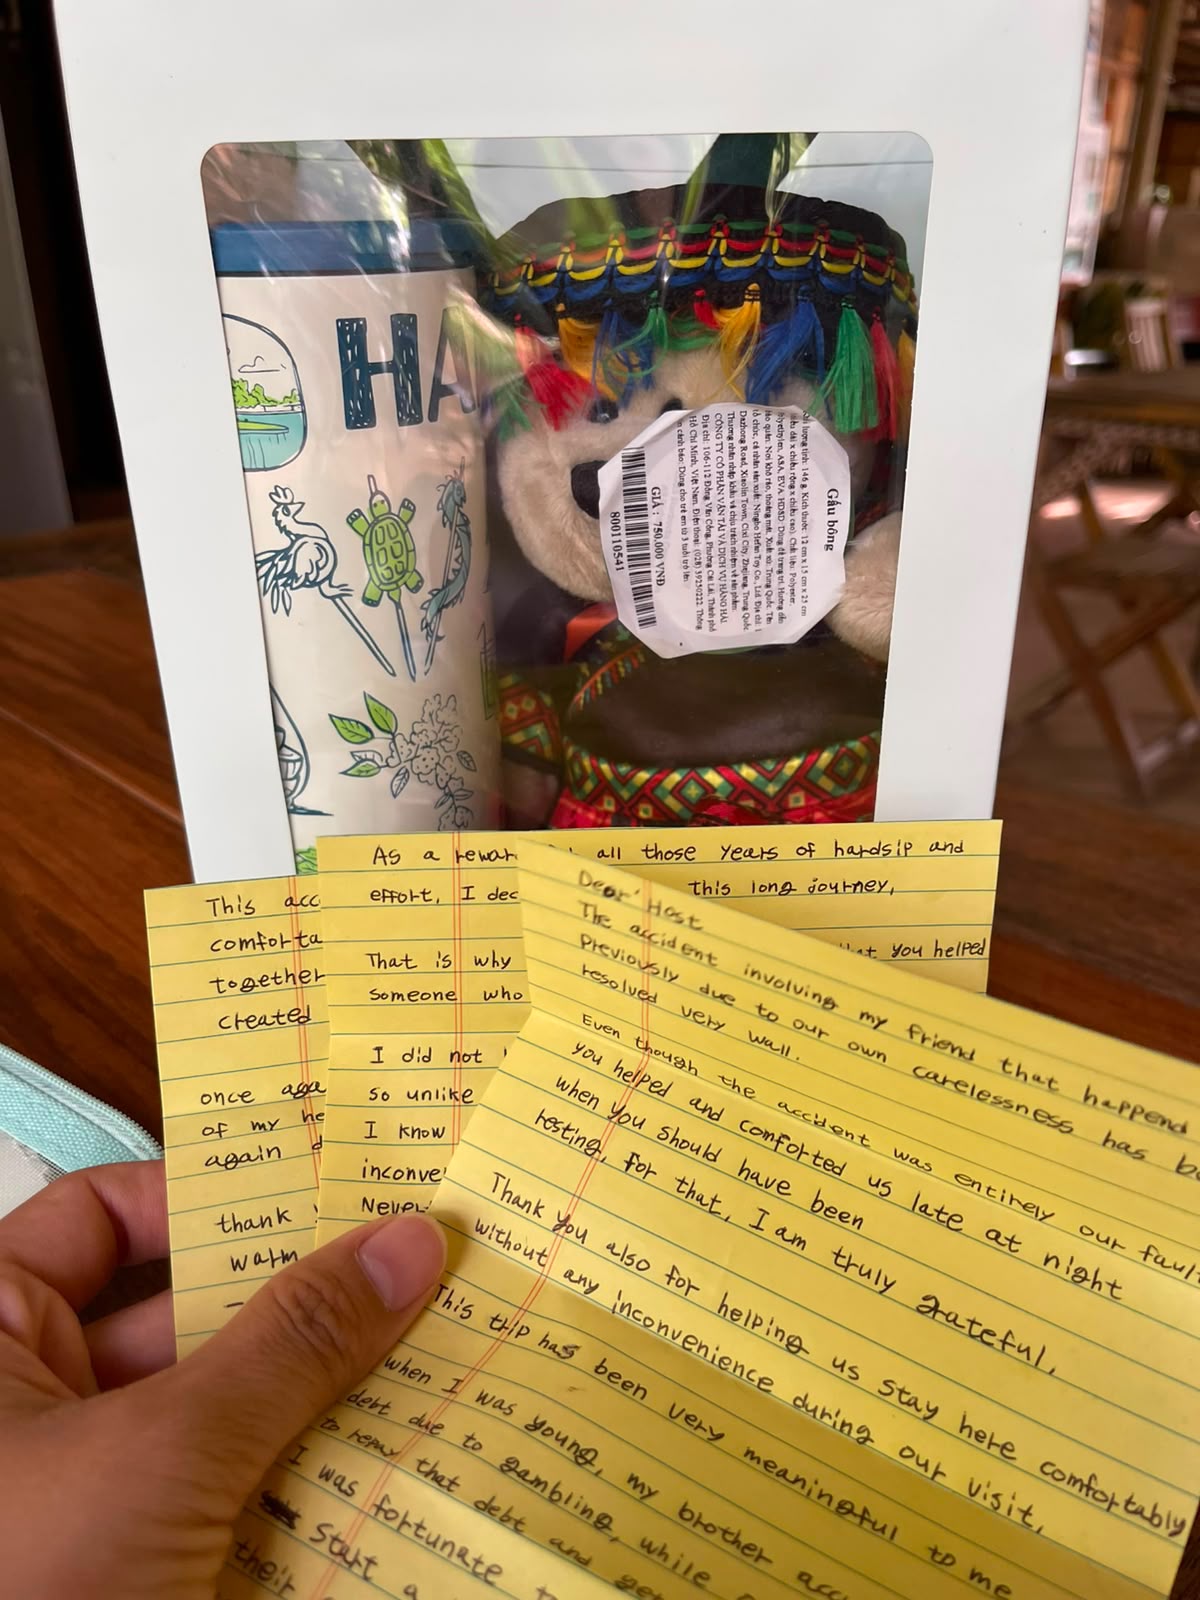 HA
Gấu bông
lượng tịnh: 146 g. Kích thước: 12 cm x 15 cm x 25 cm
dài x chiều rộng x chiều cao). Chất liệu: Polyester,
ASA, EVA. HDSD: Dùng để trang trí. Hướng dẫn
quản: Nơi khô ráo, thoáng mát. Xuất xứ: Trung Quốc. Tên
chức, cá nhân sản xuất: Ningbo Toy Co., Ltd. Địa chỉ: 1
Dazhong Road, Xiaolin Town, Cixi City, Zhejiang, Trung Quốc
Thương nhân nhập khẩu và chịu trách nhiệm về sản phẩm:
CÔNG TY CỔ PHẦN VẬN TẢI VÀ DỊCH VỤ HÀNG HẢI
Địa chỉ: 106-112 Đồng Văn Cống, Phường Cát Lái, Thành phố
Hồ Chí Minh, Việt Nam. Điện thoại: (028) 39250222. Thông
cảnh báo: Dùng cho trẻ em từ 3 tuổi trở lên
GIÁ : 750.000 VNĐ
800110541
This acc
comforta
together
created
once aga
of my he
again d
thank
warm
As a rewar all those years of hardsip and
effort, I dec this long journey,
That is why that you helped
someone who
I did not
so unlike
I know
inconve
Never
Dear Host
The accident involving my friend that happend
Previously due to our own carelessness has be
resolved very wall.
Even though the accident was entirely our fault
you helped and comforted us late at night
when you should have been
resting, for that, I am truly grateful,
Thank you also for helping us stay here comfortably
without any inconvenience during our visit,
This trip has been very meaningful to me
when I was young, my brother acc
debt due to gambling, while
to repay that debt and get
I was fortunate t
Start a
their